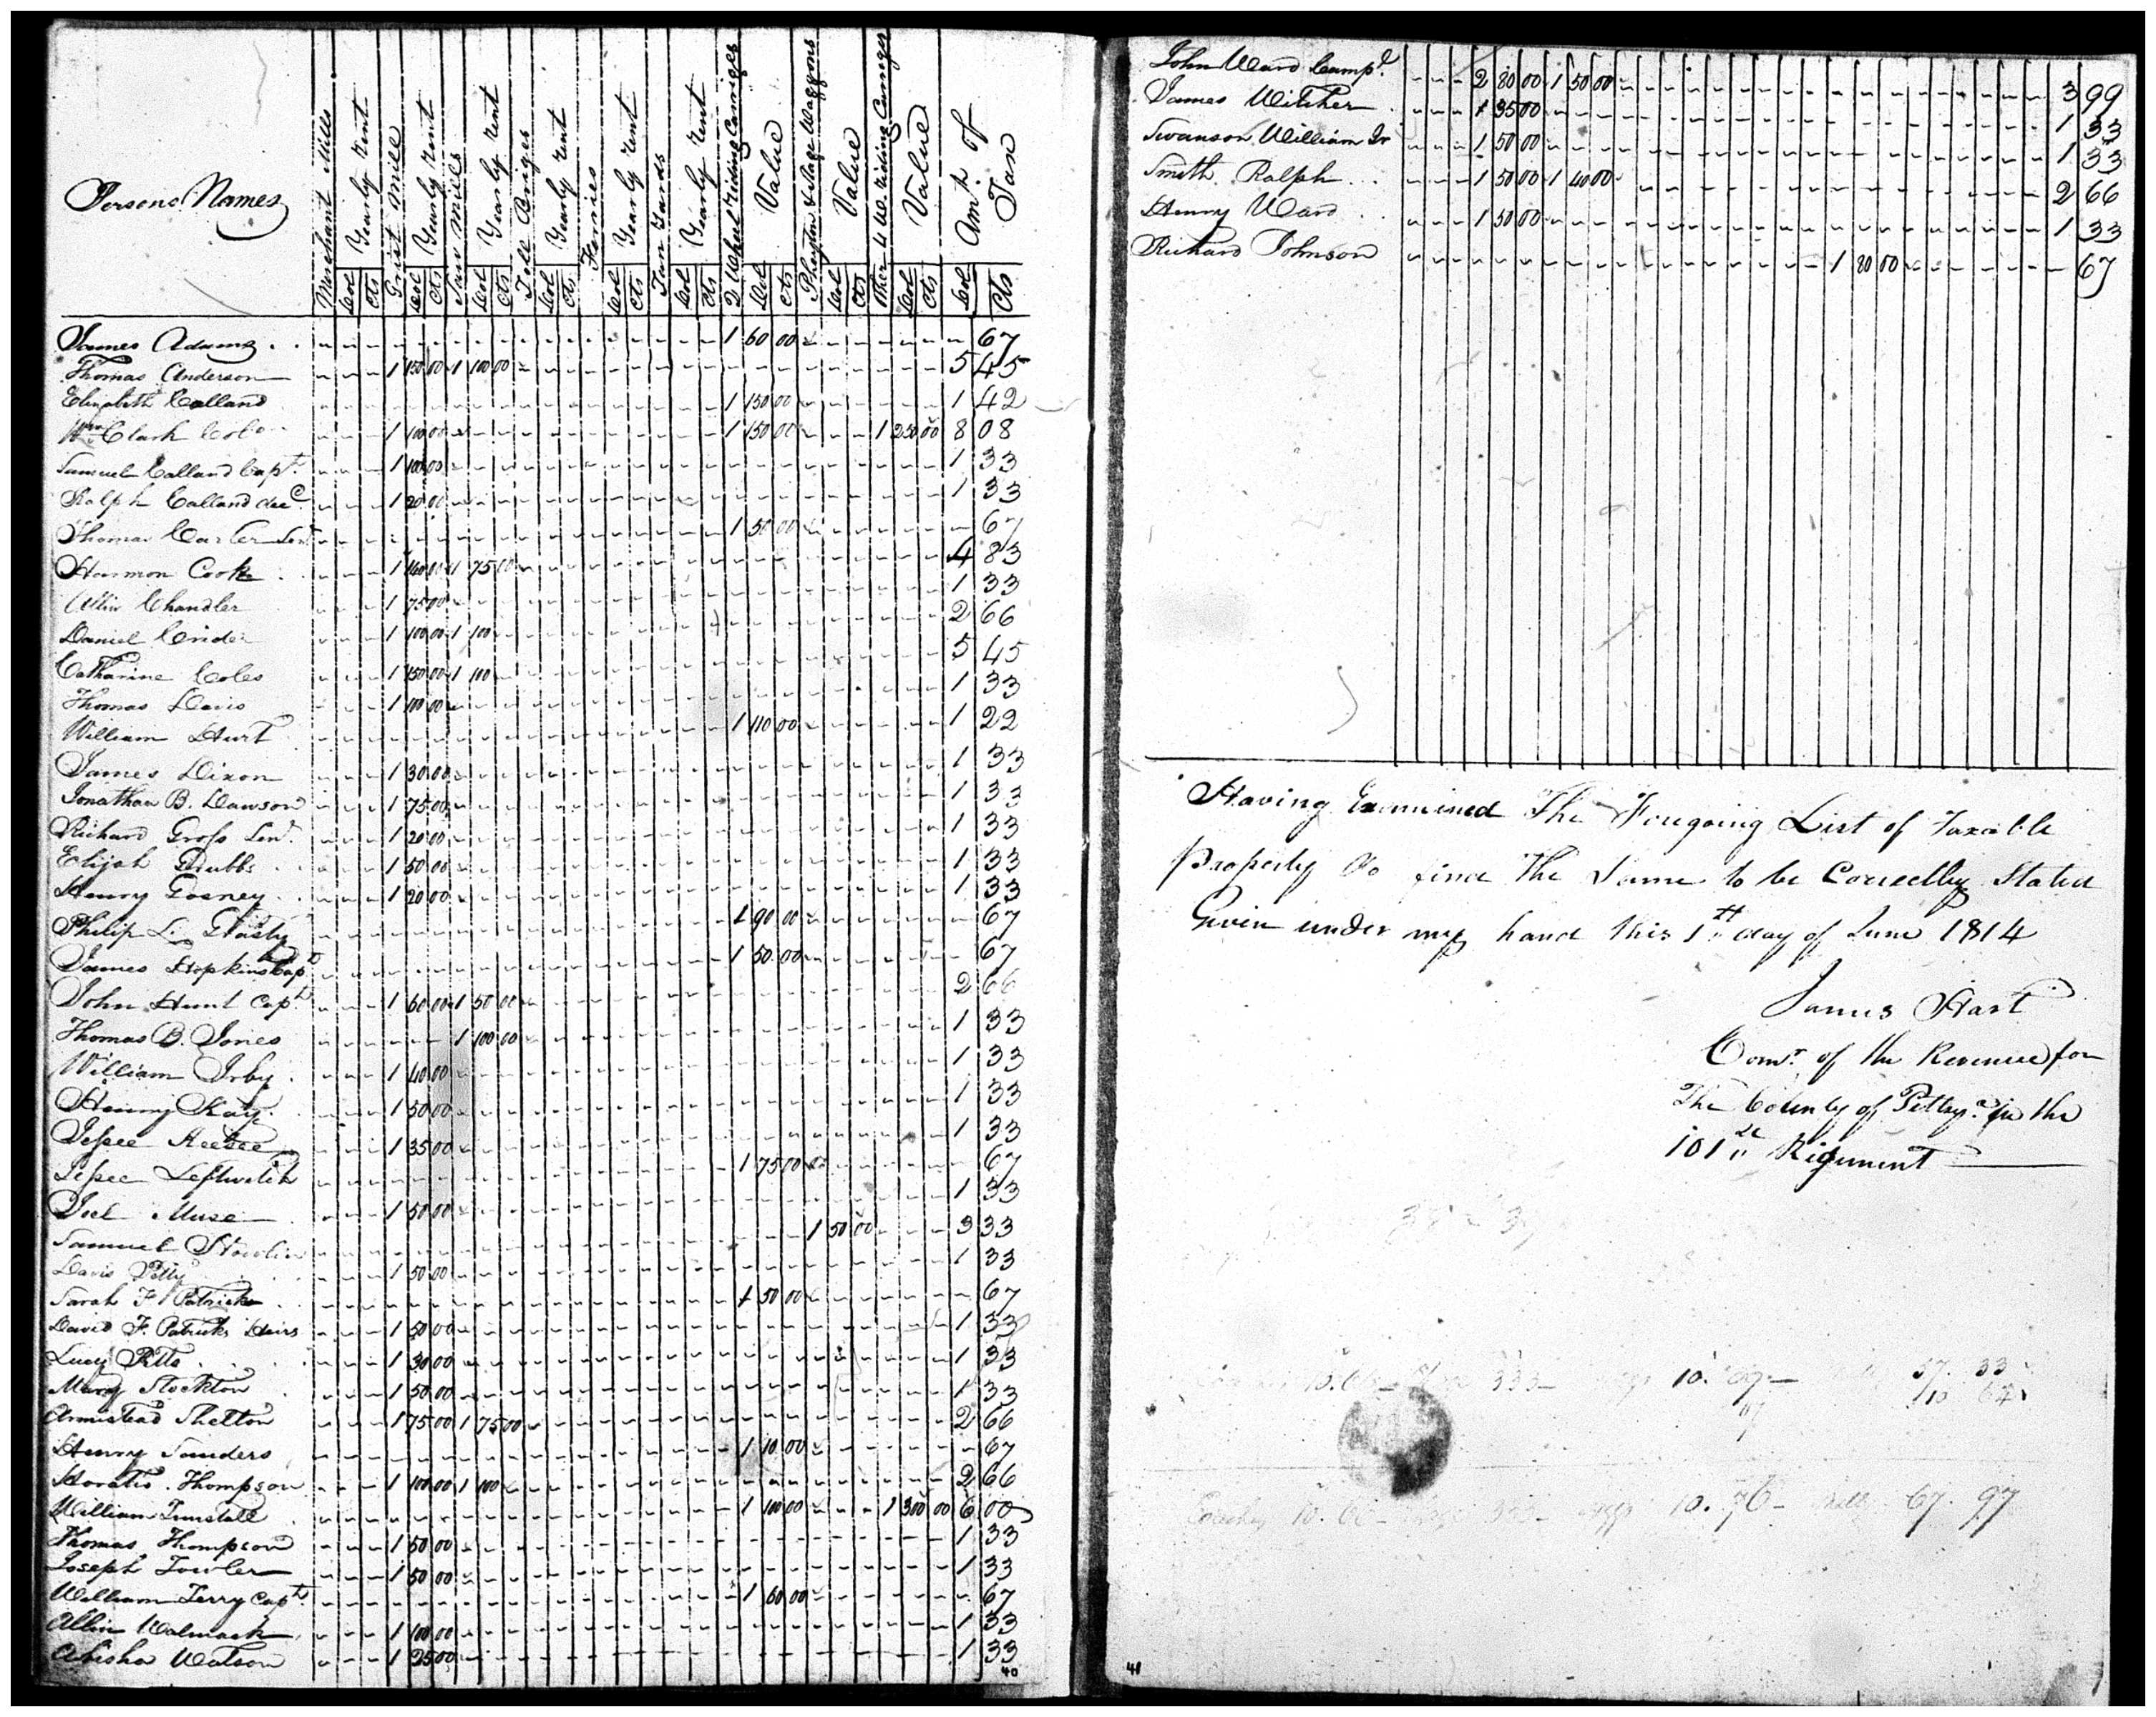 Persons Names
Merchant Mills
Yearly Rent
Dol Cts
Grist Mill
Yearly Rent
Dol Cts
Saw Mills
Yearly Rent
Dol Cts
Toll Briges
Yearly Rent
Dol Cts
Ferries
Yearly Rent
Dol Cts
Tan Yards
Yearly Rent
Dol Cts
2 Wheel Riding Carriges
Value
Dol Cts
Phayton & Stage Waggons
Value
Dol Cts
Other 4 W. Riding Carriges
Value
Dol Cts
Amt. of Tax
Dol Cts
James Adams 1 60 00 67
Thomas Anderson 1 150 00 1 100 00 5 45
Elizabeth Calland 1 150 00 1 42
Wm Clark Colo 1 100 00 1 150 00 1 250 00 8 08
Samuel Calland Capt. 1 100 00 1 33
Ralph Calland decd 1 20 00 1 33
Thomas Carter Senr 1 50 00 67
Harmon Cook 1 140 00 1 75 00 4 83
Allin Chandler 1 75 00 1 33
Daniel Crider 1 100 00 1 100 2 66
Catharine Coles 1 150 00 1 100 5 45
Thomas Davis 1 100 00 1 33
William Hurt 1 110 00 1 22
James Dixon 1 30 00 1 33
Jonathan B. Dawson 1 75 00 1 33
Richard Gross Senr. 1 20 00 1 33
Elijah Grubbs 1 50 00 1 33
Henry Gosney 1 20 00 1 33
Philip L. 1 90 00 67
James Hopkins Capt 1 50 00 67
John Hunt Capt. 1 60 00 1 50 00 2 66
Thomas B. Jones 1 100 00 1 33
William Irby 1 40 00 1 33
Henry Kay 1 50 00 1 33
Jessee 1 35 00 1 33
Jessee Leftwitch 1 75 00 67
Joel Muse 1 50 00 1 33
Samuel 1 50 00 3 33
Davis Petty 1 50 00 1 33
Sarah F. Patrick 1 50 00 67
David F. Patricks Heirs 1 50 00 1 33
Lucy Pitts 1 30 00 1 33
Mary Stockton 1 50 00 1 33
Armistead Shelton 1 75 00 1 75 00 2 66
Henry Sanders 1 10 00 67
Horatio Thompson 1 100 00 1 100 2 66
William Tunstall 1 100 00 1 300 00 6 00
Thomas Thompson 1 50 00 1 33
Joseph Towler 1 50 00 1 33
William Terry Capt. 1 60 00 67
Allin Walmack 1 100 00 1 33
Abisha Watson 1 25 00 1 33
40
John Ward Campl. 2 80 00 1 50 00 3 99
James Witcher 1 35 00 1 33
Swanson William Jr 1 50 00 1 33
Smith Ralph 1 50 00 1 40 00 2 66
Henry Ward 1 50 00 1 33
Richard Johnson 1 80 00 67
Having Examined The Foregoing List of Taxable
Property Do find The Same to be Correctly Stated
Given under my hand this 1st day of June 1814
James Hart
Comr. of the Revenue for
The County of Pittsya. in the
101st Rigiment
10. 67
333
57. 33
10 64
10.00 333 10.76 67.97
41